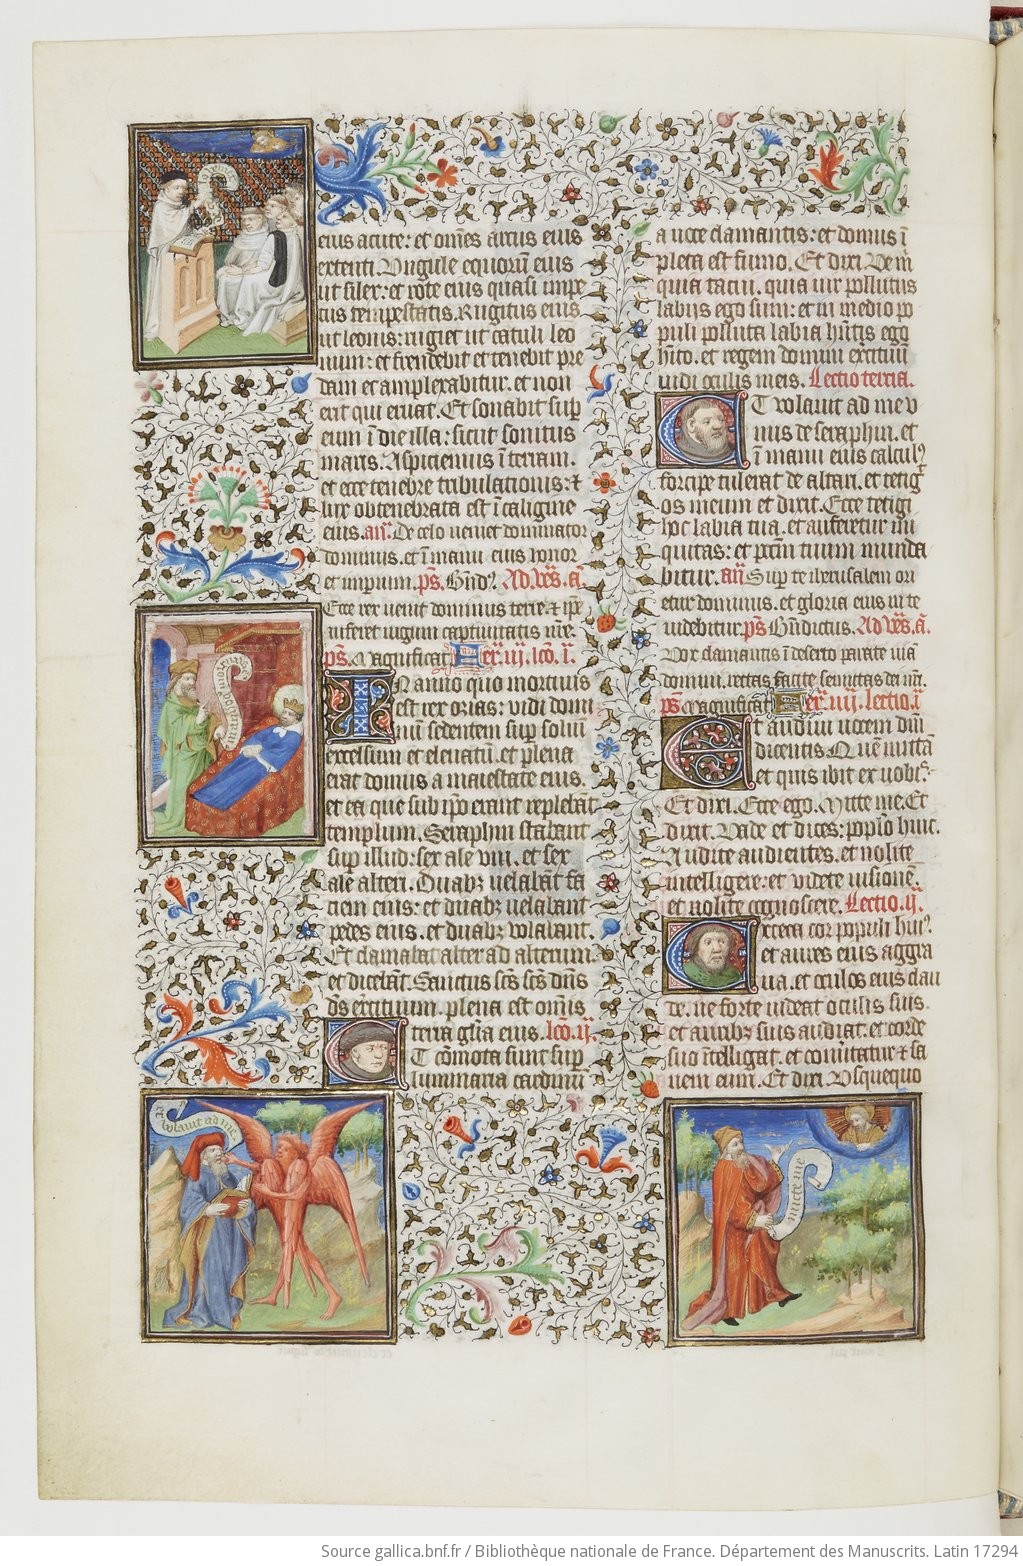 eius acute: et om̅es arcus eius
extenti. Vngule equoru̅ eius
ut silex: et rote eius quasi impe
tus tempestatis. Rugitus eius
ut leonis: rugiet ut catuli leo
num: et frendebit et tenebit pre
dam et amplexabitur. et non
erit qui eruat. Et sonabit sup
eum i̅ die illa: sicut sonitus
maris. Aspiciemus i̅ terram.
et ecce tenebre tribulationis: ⁊
lux obtenebrata est i̅ caligine
eius. an̅. De celo veniet dominator
dominus. et i̅ manu eius honor
et imperium. ps̅. Ad v̅s. a̅.
Ecce rex veniet dominus terre. ⁊ ip̅e
auferet iugum captiuitatis n̅re.
ps̅. Magnificat. Fer̅. iij. lc̅o. i̅.
IN anno quo mortuus
est rex ozias: vidi domi
num sedentem sup solium
excelsum et eleuatum. et plena
erat domus a maiestate eius.
et ea que sub ip̅o erant replebāt
templum. Seraphin stabant
sup illud: sex ale vni. et sex
ale alteri. Duabꝫ uelabant fa
ciem eius: et duabꝫ uelabant
pedes eius. et duabꝫ volabant.
Et clamabat alter ad alterum.
et dicebāt. Sanctus sc̅s sc̅s dn̅s
d̅s exercituum. plena est omnis
terra gl̅ia eius. lc̅o. ij.
ET co̅mota sunt sup
luminaria cardinu̅
a uoce clamantis: et domus i̅
pleta est fumo. Et dixi. Ve m̅
quia tacui. quia uir pollutus
labijs ego sum: et in medio po
puli polluta labia hn̅tis ego
h̅ito. et regem dominu̅ exercituu̅
uidi oculis meis. Lectio tercia.
ET volauit ad me v
nus de seraphin. et
i̅ manu eius calculꝰ
forcipe tulerat de altari. et tetig
os meum et dixit. Ecce tetigi
hoc labia tua. et auferetur ini
quitas: et pcc̅m tuum munda
bitur. an̅. Sup te iherusalem ori
etur dominus. et gloria eius in te
uidebitur. ps̅. Bn̅dictus. Ad v̅s. a̅.
Vox clamantis i̅ deserto parate uia̅
domini. rectas facite semitas dei nr̅i.
ps̅. Magnificat. Fer̅. iiij. lectio. i̅
ET audiui uocem dn̅i
dicentis. Que̅ mitta̅
et quis ibit ex uobis.
Et dixi. Ecce ego. Mitte me. Et
dixit. Vade et dices: pop̅lo huic.
Audite audientes. et nolite
intelligere: et videte uisione̅.
et nolite cognoscere. Lectio. ij.
Exceca cor populi huiꝰ.
et aures eius aggra
ua. et oculos eius clau
de. ne forte uideat oculis suis.
et auribꝫ suis audiat. et corde
suo i̅telligat. et conu̅tatur ⁊ sa
nem eum. Et dixi. Vsquequo
volauit ad me
mitte me
Source gallica.bnf.fr / Bibliothèque nationale de France. Département des Manuscrits. Latin 17294